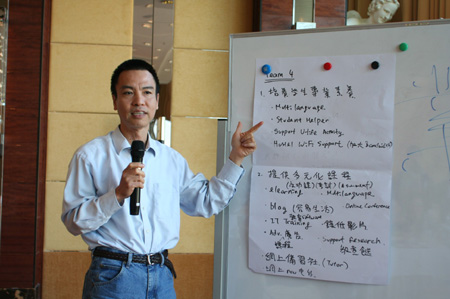 Team 4
1. 培養學生專業素質
- Multilanguage
- Student Helper
Support Utile Activity
Home WiFi Support
2. 提供多元化課程
elearning Multilanguage
blog (分享生活) Online Conference
IT Training 提供影片
Adv. 廣告 Support Research
課程
網上補習社 (Tutor)
網上 平台